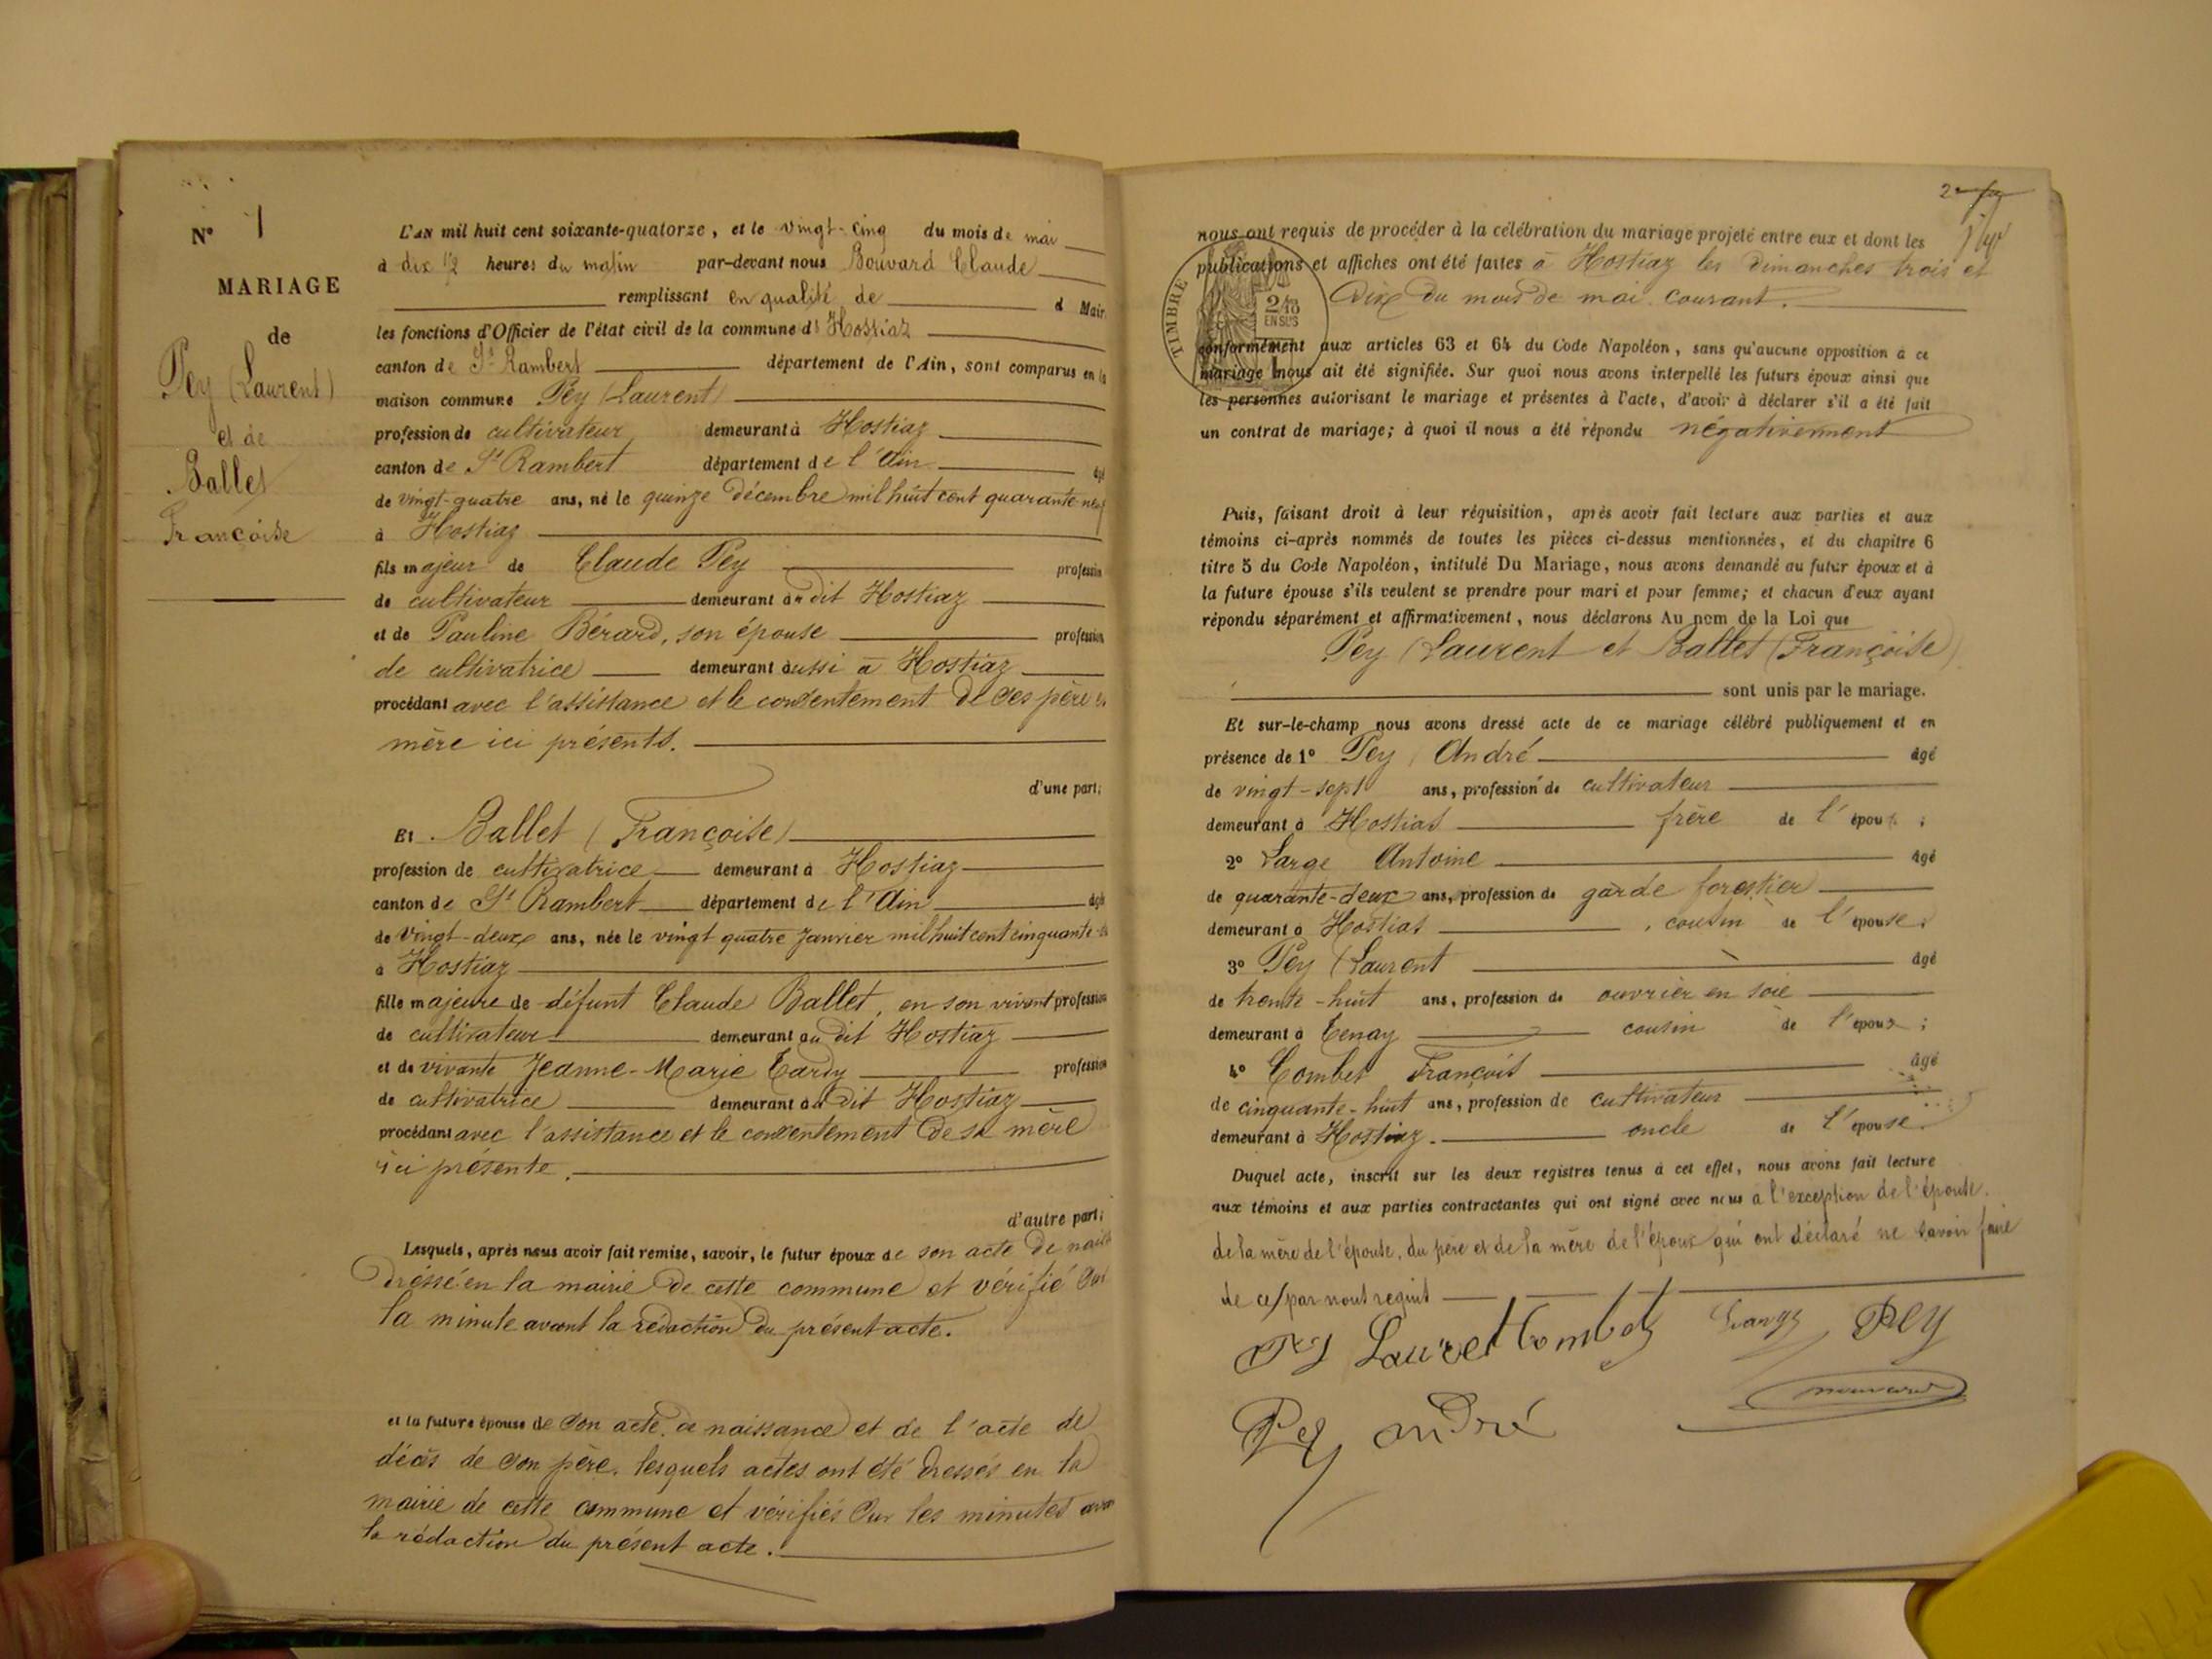 N° 1
MARIAGE
de
Pey (Laurent)
et de
Ballet
Françoise
L'AN mil huit cent soixante-quatorze, et le vingt-cinq du mois de mai
à dix ½ heures du matin par-devant nous Bouvard Claude
remplissant en qualité de d Mair
les fonctions d'Officier de l'état civil de la commune d' Hostiaz
canton de St Rambert département de l'Ain, sont comparus en la
maison commune Pey (Laurent)
profession de cultivateur demeurant à Hostiaz
canton de St Rambert département de l'Ain âgé
de vingt-quatre ans, né le quinze décembre mil huit cent quarante neuf
à Hostiaz
fils majeur de Claude Pey profession
de cultivateur demeurant au dit Hostiaz
et de Pauline Bérard, son épouse profession
de cultivatrice demeurant aussi à Hostiaz
procédant avec l'assistance et le consentement de ses père et
mère ici présents.
d'une part;
Et Ballet (Françoise)
profession de cultivatrice demeurant à Hostiaz
canton de St Rambert département de l'Ain âgée
de vingt-deux ans, née le vingt quatre janvier mil huit cent cinquante
à Hostiaz
fille majeure de défunt Claude Ballet, en son vivant profession
de cultivateur demeurant au dit Hostiaz
et de vivante Jeanne-Marie Tardy profession
de cultivatrice demeurant au dit Hostiaz
procédant avec l'assistance et le consentement de sa mère
ici présente.
d'autre part;
Lesquels, après nous avoir fait remise, savoir, le futur époux de son acte de naiss
dressé en la mairie de cette commune et vérifié sur
la minute avant la rédaction du présent acte.
et la future épouse de son acte de naissance et de l'acte de
décès de son père, lesquels actes ont été dressés en la
mairie de cette commune et vérifiés sur les minutes avan
la rédaction du présent acte.
nous ont requis de procéder à la célébration du mariage projeté entre eux et dont les
publications et affiches ont été faites à Hostiaz les dimanches trois et
dix du mois de mai courant.
TIMBRE
2/10
EN SUS
conformément aux articles 63 et 64 du Code Napoléon, sans qu'aucune opposition à ce
mariage nous ait été signifiée. Sur quoi nous avons interpellé les futurs époux ainsi que
les personnes autorisant le mariage et présentes à l'acte, d'avoir à déclarer s'il a été fait
un contrat de mariage; à quoi il nous a été répondu négativement
Puis, faisant droit à leur réquisition, après avoir fait lecture aux parties et aux
témoins ci-après nommés de toutes les pièces ci-dessus mentionnées, et du chapitre 6
titre 5 du Code Napoléon, intitulé Du Mariage, nous avons demandé au futur époux et à
la future épouse s'ils veulent se prendre pour mari et pour femme; et chacun d'eux ayant
répondu séparément et affirmativement, nous déclarons Au nom de la Loi que
Pey (Laurent et Ballet (Françoise)
sont unis par le mariage.
Et sur-le-champ nous avons dressé acte de ce mariage célébré publiquement et en
présence de 1° Pey André âgé
de vingt-sept ans, profession de cultivateur
demeurant à Hostias frère de l'époux ;
2° Large Antoine âgé
de quarante-deux ans, profession de garde forestier
demeurant à Hostias, cousin de l'épouse;
3° Pey (Laurent âgé
de trente-huit ans, profession de ouvrier en soie
demeurant à Tenay cousin de l'époux ;
4° Combet François âgé
de cinquante-huit ans, profession de cultivateur
demeurant à Hostiaz. oncle de l'épouse.
Duquel acte, inscrit sur les deux registres tenus à cet effet, nous avons fait lecture
aux témoins et aux parties contractantes qui ont signé avec nous à l'exception de l'épouse.
de la mère de l'épouse, du père et de la mère de l'époux qui ont déclaré ne savoir faire
de ce par nous requis
Pey Laurent Combet Large Pey
Pey andré